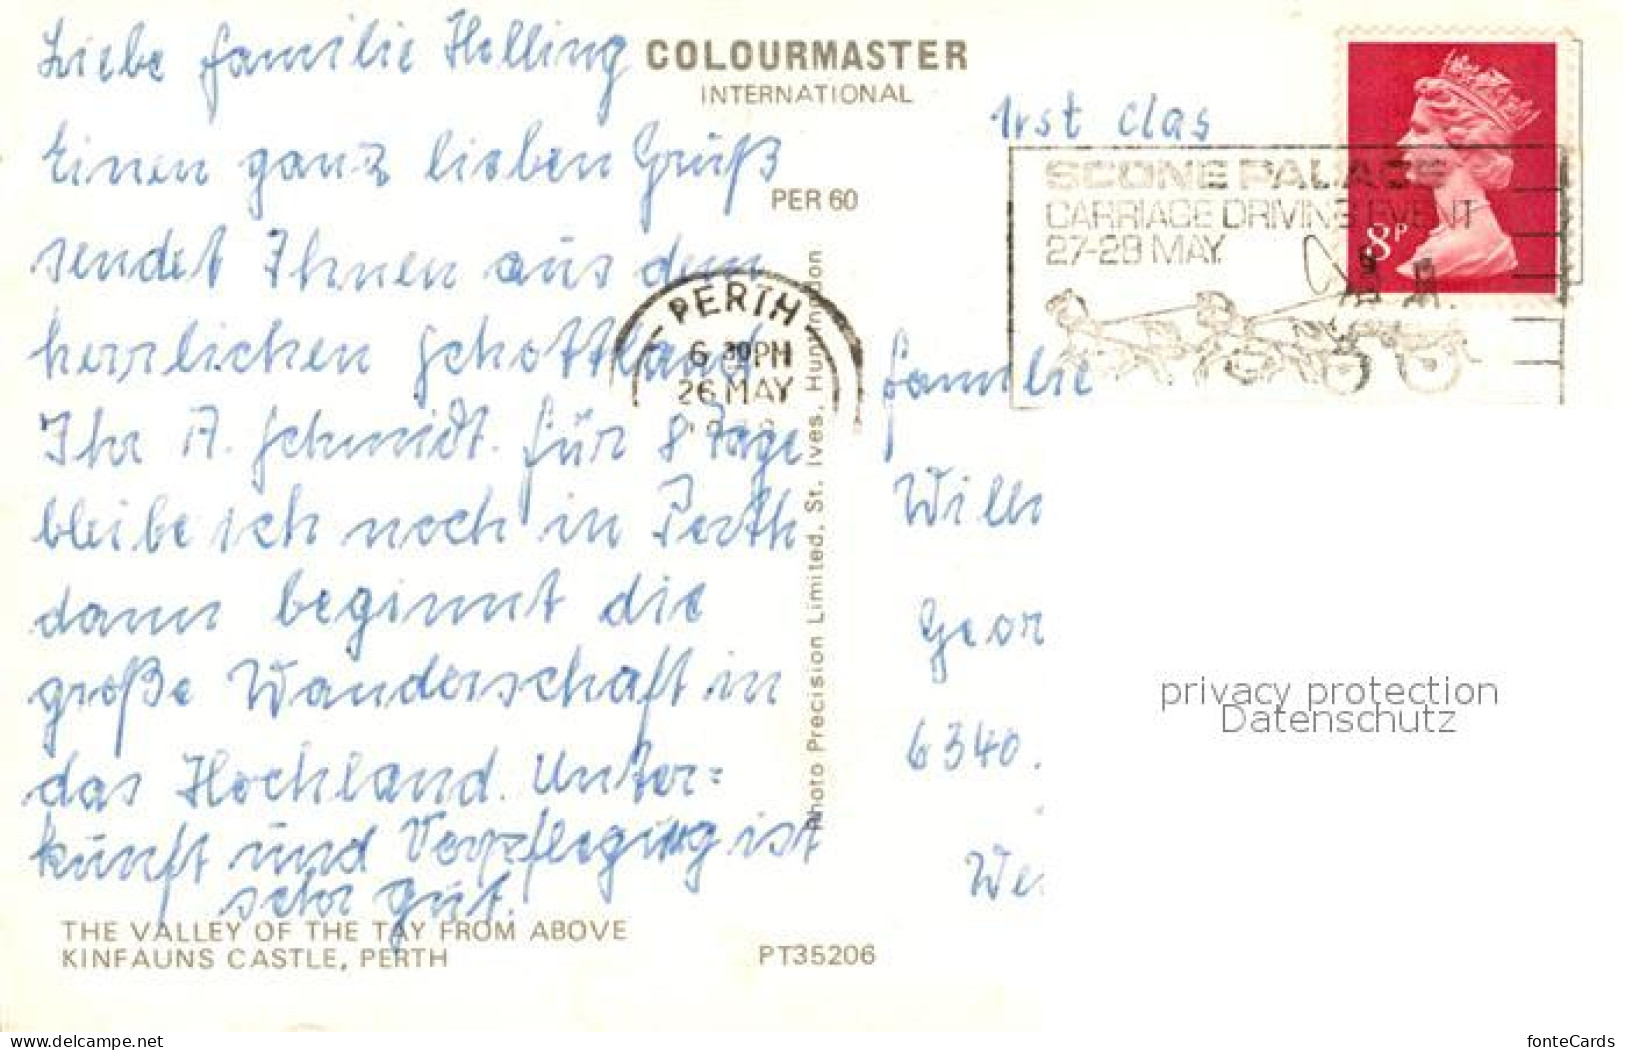 Liebe Familie Helling
COLOURMASTER
INTERNATIONAL
1rst clas
Einen ganz lieben Gruß
PER 60
SCONE PALACE
CARRIAGE DRIVING EVENT
27-28 MAY
8P
sendet Ihnen aus dem
PERTH
6 30PM
26 MAY
herrlichen Schottland
Familie
Ihr A. Schmidt. für 8 Tage
bleibe ich noch in Perth
Will
dann beginnt die
Geor
große Wanderschaft in
privacy protection
Datenschutz
das Hochland. Unter=
6340.
kunft und Verpflegung ist
We
sehr gut.
Photo Precision Limited, St. Ives, Huntingdon
THE VALLEY OF THE TAY FROM ABOVE
KINFAUNS CASTLE, PERTH
PT35206
www.delcampe.net
fonteCards